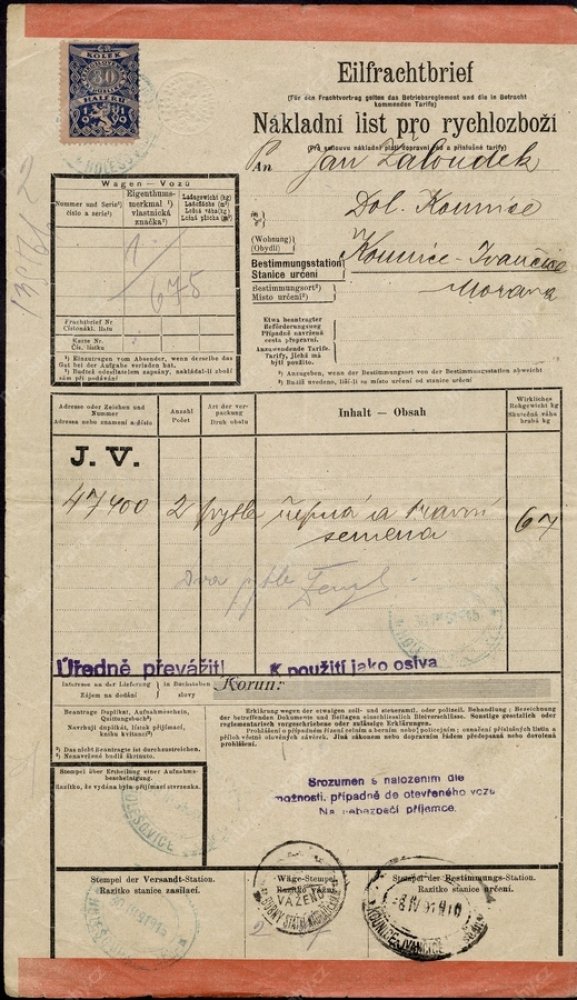 KOLEK
30
HALÉŘŮ
1919
Eilfrachtbrief
(Für den Frachtvertrag gelten das Betriebsreglement und die in Betracht
kommenden Tarife)
Nákladní list pro rychlozboží
(Pro smlouvu nákladní platí dopravní řád a příslušné tarify)
An Jan Žaloudek
Dol. Kounice
(Wohnung)
(Obydlí)
Bestimmungsstation
Stanice určení
Kounice-Ivančice
Morava
Bestimmungsort²)
Místo určení²)
Etwa beantragter
Beförderungsweg
Případně navržená
cesta přepravní.
Anzuwendende Tarife.
Tarify, jichž má
býti použito.
²) Anzugeben, wenn der Bestimmungsort von der Bestimmungsstation abweicht
²) Budiž uvedeno, liší-li se místo určení od stanice určení
Wagen — Vozů
Nummer und Serie¹)
číslo a serie¹)
Eigenthums-
merkmal ¹)
vlastnická
značka¹)
Ladegewicht (kg)
Ladefläche (m²)
Ložná váha(kg)
Ložná plocha (m²)
1
675
Frachtbrief Nr
Čísto nákl. listu
Karte Nr.
Čís. lístku
¹) Einzutragen vom Absender, wenn derselbe das
Gut bei der Aufgabe verladen hat.
¹) Budtež odesílatelem zapsány, nakládal-li zboží
sám při podávání
Adresse oder Zeichen und
Nummer
Adressa nebo znamení a číslo
Anzahl
Počet
Art der ver-
packung
Druh obalu
Inhalt — Obsah
Wirkliches
Rohgewicht kg
Skutečná váha
hrubá kg
J. V.
47400 2 pytle řepná a travní 67
semena
dva pytle
Úředně převážiti K použití jako osiva
Interesse an der Lieferung
Zájem na dodání
in Buchstaben
slovy
Korun:
Beantrage Duplikat, Aufnahmsschein,
Quittungsbuch³)
Navrhuji duplikát, lístek přijímací,
knihu kvitanci³)
³) Das nicht Beantragte ist durchzustreichen.
³) Nenavržené budiž škrtnuto.
Erklärung wegen der etwaigen zoll- und steueramtl. oder polizeil. Behandlung; Bezeichnung
der betreffenden Dokumente und Beilagen einschliesslich Bleiverschlüsse. Sonstige gesetzlich oder
reglementarisch vorgeschriebene oder zulässige Erklärungen.
Prohlášení o případném řízení celním a berním nebo policejním; označení příslušných listin a
příloh včetně olověných závěrek. Jiná zákonem nebo dopravním řádem předepsaná nebo dovolená
prohlášení.
Stempel über Ertheilung einer Aufnahms-
bescheinigung.
Razítko, že vydána byla přijímací stvrzenka.
Srozumen s naložením dle
možnosti, případně do otevřeného vozu
Na nebezpečí příjemce.
HOLEŠOVICE
Stempel der Versandt-Station.
Razítko stanice zasílací.
Wäge-Stempel
Razítko vážní
VÁŽENO
Stempel der Bestimmungs-Station.
Razítko stanice určení.
KOUNICE-IVANČICE